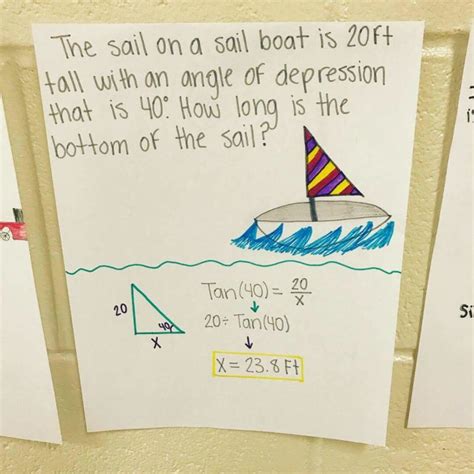 The sail on a sail boat is 20ft
tall with an angle of depression
that is 40°. How long is the
bottom of the sail?
Tan(40) = 20/x
20
40
x
20 ÷ Tan(40)
x = 23.8 Ft